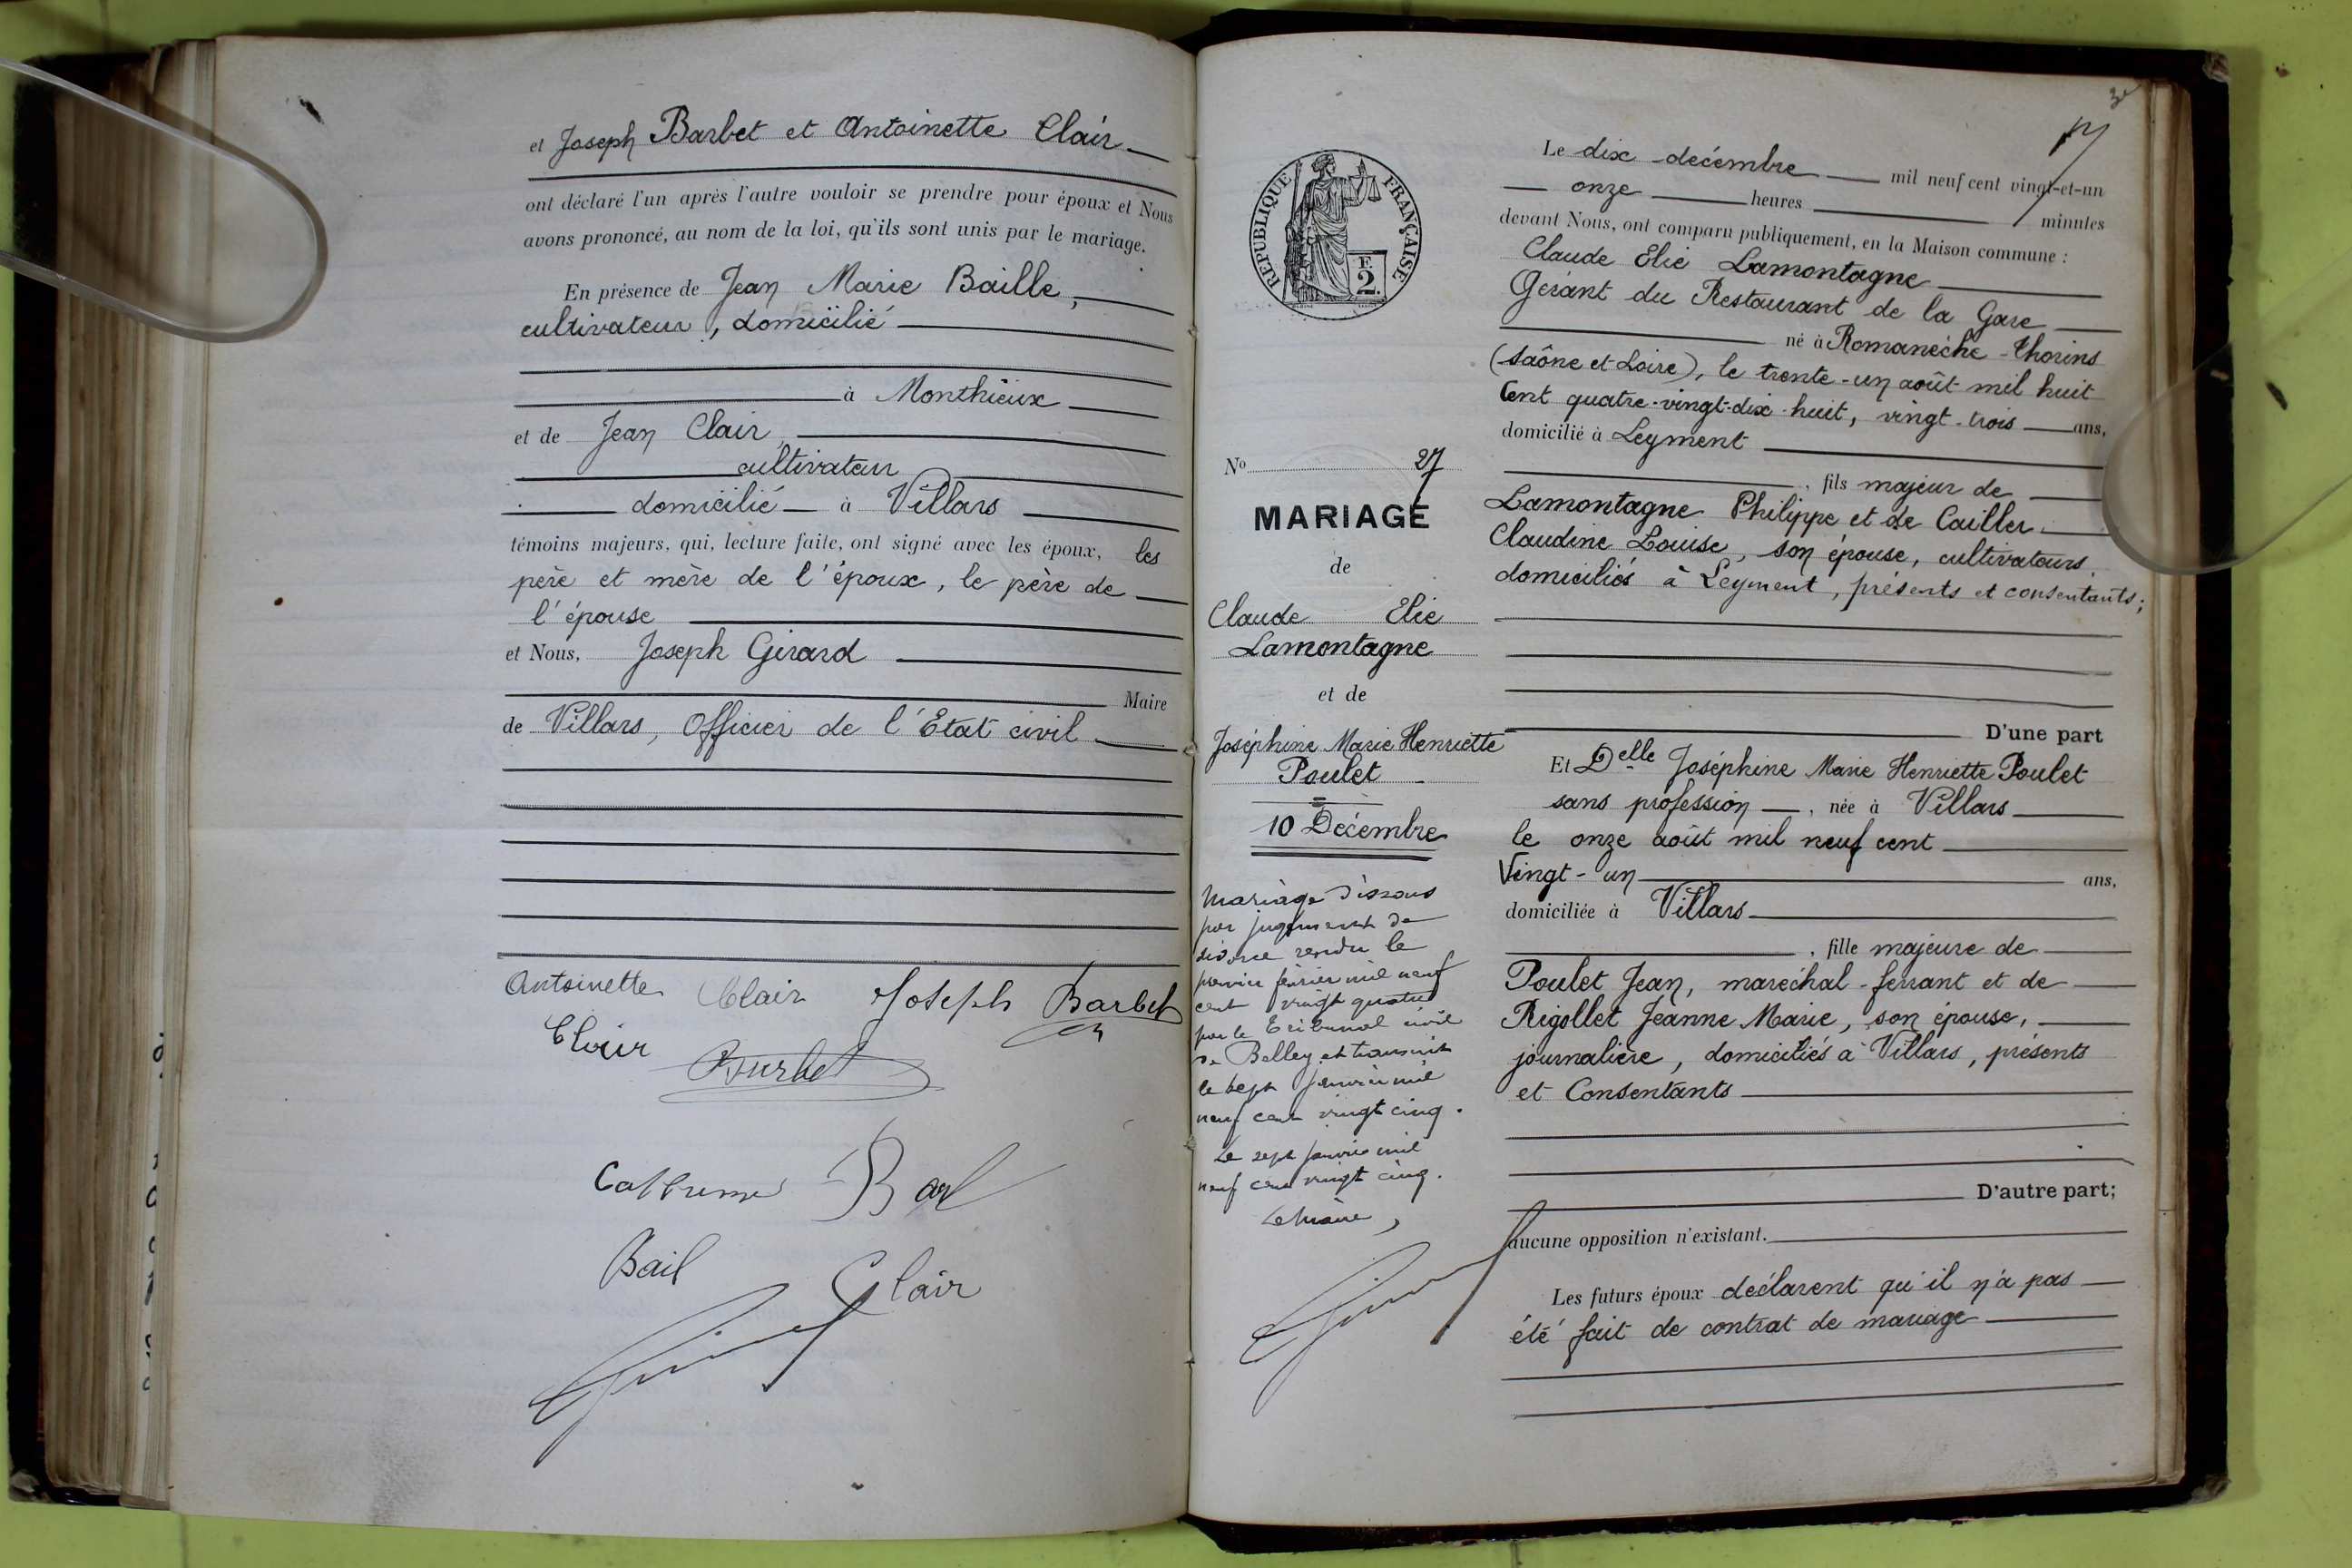 et Joseph Barbet et Antoinette Clair
ont déclaré l'un après l'autre vouloir se prendre pour époux et Nous
avons prononcé, au nom de la loi, qu'ils sont unis par le mariage.
En présence de Jean Marie Baille,
cultivateur, domicilié
à Monthieux
et de Jean Clair
cultivateur
domicilié à Villars
témoins majeurs, qui, lecture faite, ont signé avec les époux, les
père et mère de l'époux, le père de
l'épouse
et Nous, Joseph Girard
Maire
de Villars, Officier de l'Etat civil
Antoinette Clair Joseph Barbet
Clair Burbet
Bail Clair
3
RÉPUBLIQUE FRANÇAISE
F.
2.
No 27
MARIAGE
de
Claude Elie
Lamontagne
et de
Joséphine Marie Henriette
Poulet
10 Décembre
Mariage dissous
par jugement de
divorce rendu le
premier février mil neuf
cent vingt quatre
par le Tribunal civil
de Belley et transcrit
le sept janvier mil
neuf cent vingt cinq.
Le sept janvier mil
neuf cent vingt cinq.
Le Maire,
Le dix décembre mil neuf cent vingt-et-un
onze heures minutes
devant Nous, ont comparu publiquement, en la Maison commune :
Claude Elie Lamontagne
Gérant du Restaurant de la Gare
né à Romanèche-Thorins
(Saône et Loire), le trente-un août mil huit
Cent quatre-vingt-dix-huit, vingt-trois ans,
domicilié à Leyment
, fils majeur de
Lamontagne Philippe et de Cailler
Claudine Louise, son épouse, cultivateurs
domiciliés à Leyment, présents et consentants;
D'une part
Et Delle Joséphine Marie Henriette Poulet
sans profession, née à Villars
le onze août mil neuf cent
Vingt-un ans,
domiciliée à Villars
, fille majeure de
Poulet Jean, maréchal-ferrant et de
Rigollet Jeanne Marie, son épouse,
journalière, domiciliés à Villars, présents
et Consentants
D'autre part;
aucune opposition n'existant.
Les futurs époux déclarent qu'il n'a pas
été fait de contrat de mariage